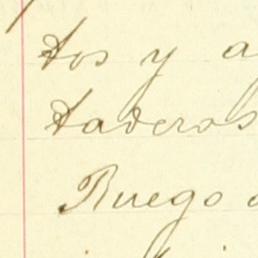 tos y a
taderos
Ruego